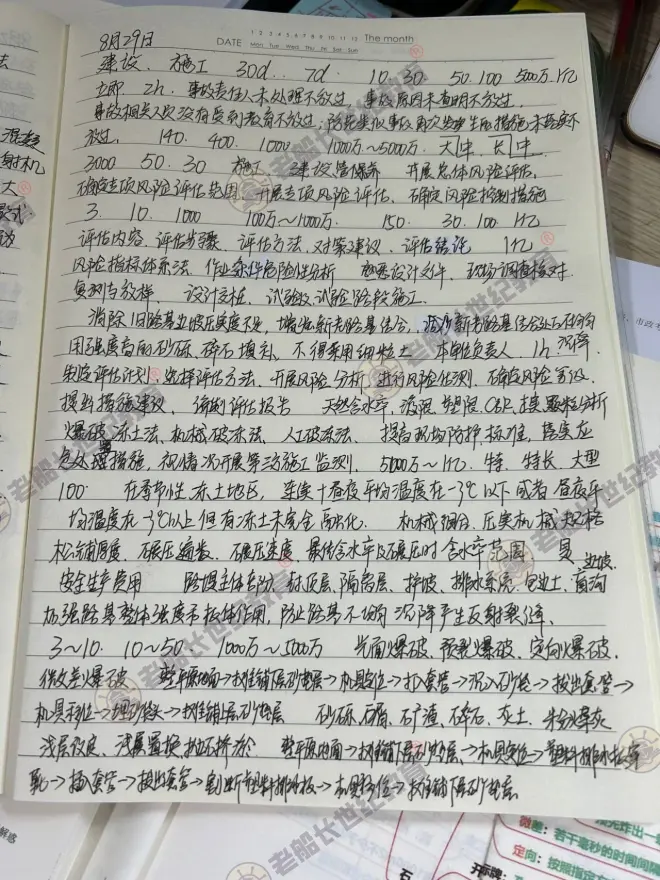 8月29日
DATE 1 2 3 4 5 6 7 8 9 10 11 12 The month
Mon Tue Wed Thu Fri Sat Sun
建设、施工 30d.. 7d. 10、30 50.100 5000万.1亿
立即 2h. 事故责任人未处理不放过, 事故原因未查明不放过,
事故相关人员没有受到教育不放过, 防范类似事故再次发生的措施未落实不
放过, 140、400. 1000 1000万~5000万. 大中、长中
3000 50、30 施工 建设、管保养 开展总体风险评估、
确定专项风险评估范围 开展专项风险评估、确定风险控制措施
3. 10. 1000 100万~1000万. 150. 30. 100. 1亿
评估内容、评估步骤、评估方法、对策建议、评估结论 1亿
风险指标体系法、作业条件危险性分析 熟悉设计文件、现场调查核对.
复测与放样、设计交桩、试验及试验路段施工.
消除旧路基边坡压实度不足, 增强新老路基结合, 减少新老路基结合处不均匀
用强度高的砂砾、碎石填补, 不得采用细粒土 本单位负责人、1h 沉降、
制定评估计划、选择评估方法、开展风险分析 进行风险估测、确定风险等级.
提出措施建议、编制评估报告 天然含水率、液限、塑限、CBR、颗粒分析
爆破冻土法、机械破冻法、人工破冻法、提高现场防护标准, 落实应
急处置措施, 视情况开展第三方施工监测. 5000万~1亿. 特、特长、大型
100. 在季节性冻土地区, 连续十昼夜平均温度在-3℃以下或者 昼夜平
均温度在-3℃以上但有冻土未完全融化. 机械组合、压实机械规格
松铺厚度、碾压遍数、碾压速度、最佳含水率及碾压时含水率范围
边坡.
安全生产费用 封顶层、隔离层、护坡、排水系统、包边土、盲沟
加强路基整体强度和板体作用, 防止路基不均匀沉降产生反射裂缝.
3~10. 10~50. 1000万~5000万 光面爆破、预裂爆破、定向爆破.
微差爆破 整平原地面→摊铺下层砂垫层→机具定位→打入套管→沉入砂袋→拔出套管→
机具移位→埋砂袋头→摊铺上层砂垫层 砂砾、石屑、矿渣、碎石、灰土、
浅层改良、浅层置换 抛石挤淤、整平原地面→摊铺下层砂垫层、→机具定位→塑料排水板穿
靴→插套管→拔出套管→割断塑料排水板→机具移位→摊铺上层砂垫层
老船长世纪教育
微差: 若干毫秒的时间间隔
定向: 按照指定方
开标牌:
解惑